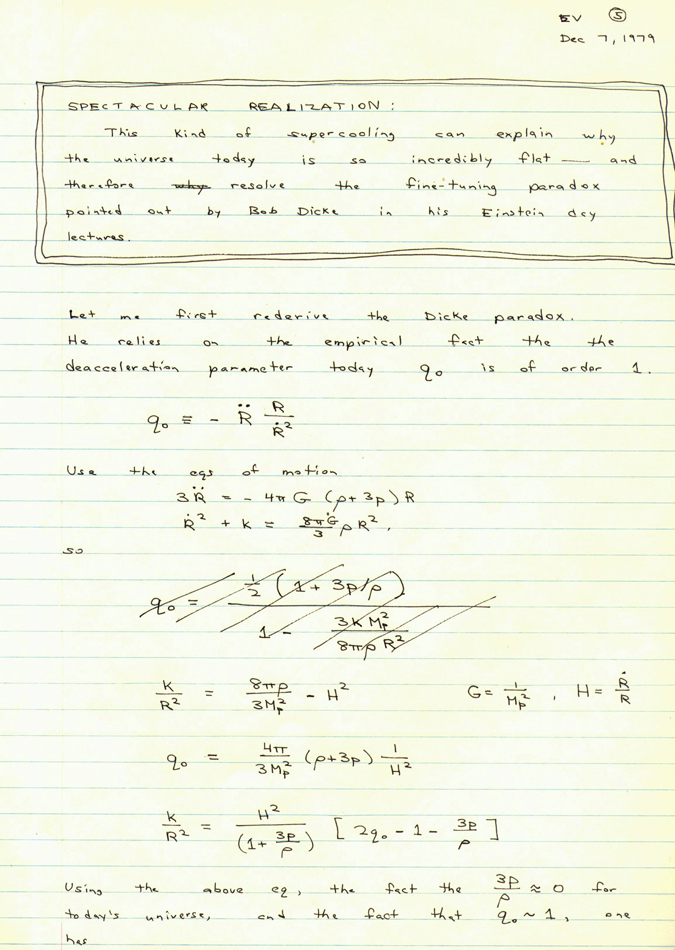 EV ⑤
Dec 7, 1979
SPECTACULAR REALIZATION:
This kind of supercooling can explain why
the universe today is so incredibly flat — and
therefore ~~why~~ resolve the fine-tuning paradox
pointed out by Bob Dicke in his Einstein day
lectures.
Let me first rederive the Dicke paradox.
He relies on the empirical fact the the
deacceleration parameter today q₀ is of order 1.
q₀ ≡ - R̈ R/Ṙ²
Use the eqs of motion
3R̈ = - 4π G (ρ+3p) R
Ṙ² + k = 8πG/3 ρR²,
so
~~q₀ = ½ (1 + 3p/ρ) / (1 - 3kM_p²/8πρR²)~~
k/R² = 8πρ/3M_p² - H²   G = 1/M_p² , H = Ṙ/R
q₀ = 4π/3M_p² (ρ+3p) 1/H²
k/R² = H²/(1+3p/ρ) [2q₀ - 1 - 3p/ρ]
Using the above eq, the fact the 3p/ρ ≈ 0 for
today's universe, and the fact that q₀ ~ 1, one
has